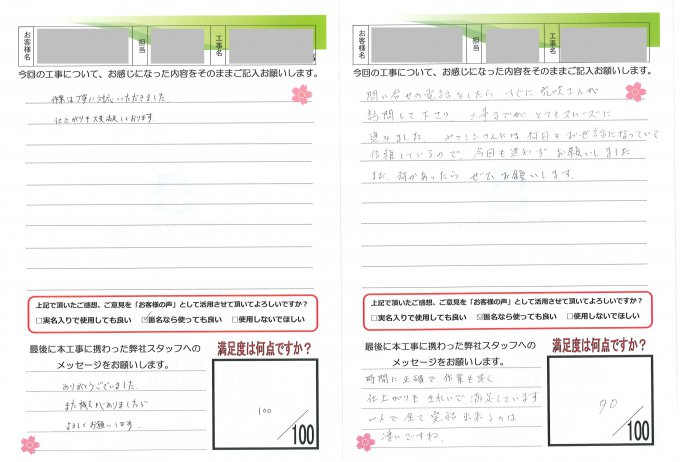 お客様名
担当
工事名
今回の工事について、お感じになった内容をそのままご記入お願いします。
作業は丁寧に対応いただきました。
仕上がりも大満足しております
上記で頂いたご感想、ご意見を「お客様の声」として活用させて頂いてよろしいですか？
□実名入りで使用しても良い ☑匿名なら使っても良い □使用しないでほしい
最後に本工事に携わった弊社スタッフへの
メッセージをお願いします。
ありがとうございました。
また機会がありましたら
よろしくお願いします。
満足度は何点ですか？
100
/100
お客様名
担当
工事名
今回の工事について、お感じになった内容をそのままご記入お願いします。
問い合せの電話をしたら すぐに
訪問して下さり、工事までが とてもスムーズに
進みました。 さんには 何回も お世話になっていて
信頼しているので 今回も迷わず お願いしました
また 何かあったら ぜひ お願いします。
上記で頂いたご感想、ご意見を「お客様の声」として活用させて頂いてよろしいですか？
□実名入りで使用しても良い ☑匿名なら使っても良い □使用しないでほしい
最後に本工事に携わった弊社スタッフへの
メッセージをお願いします。
時間に正確で 作業も早く
仕上がりも きれいで 満足しています
一人で全て完結出来るのは
凄いですね。
満足度は何点ですか？
90
/100